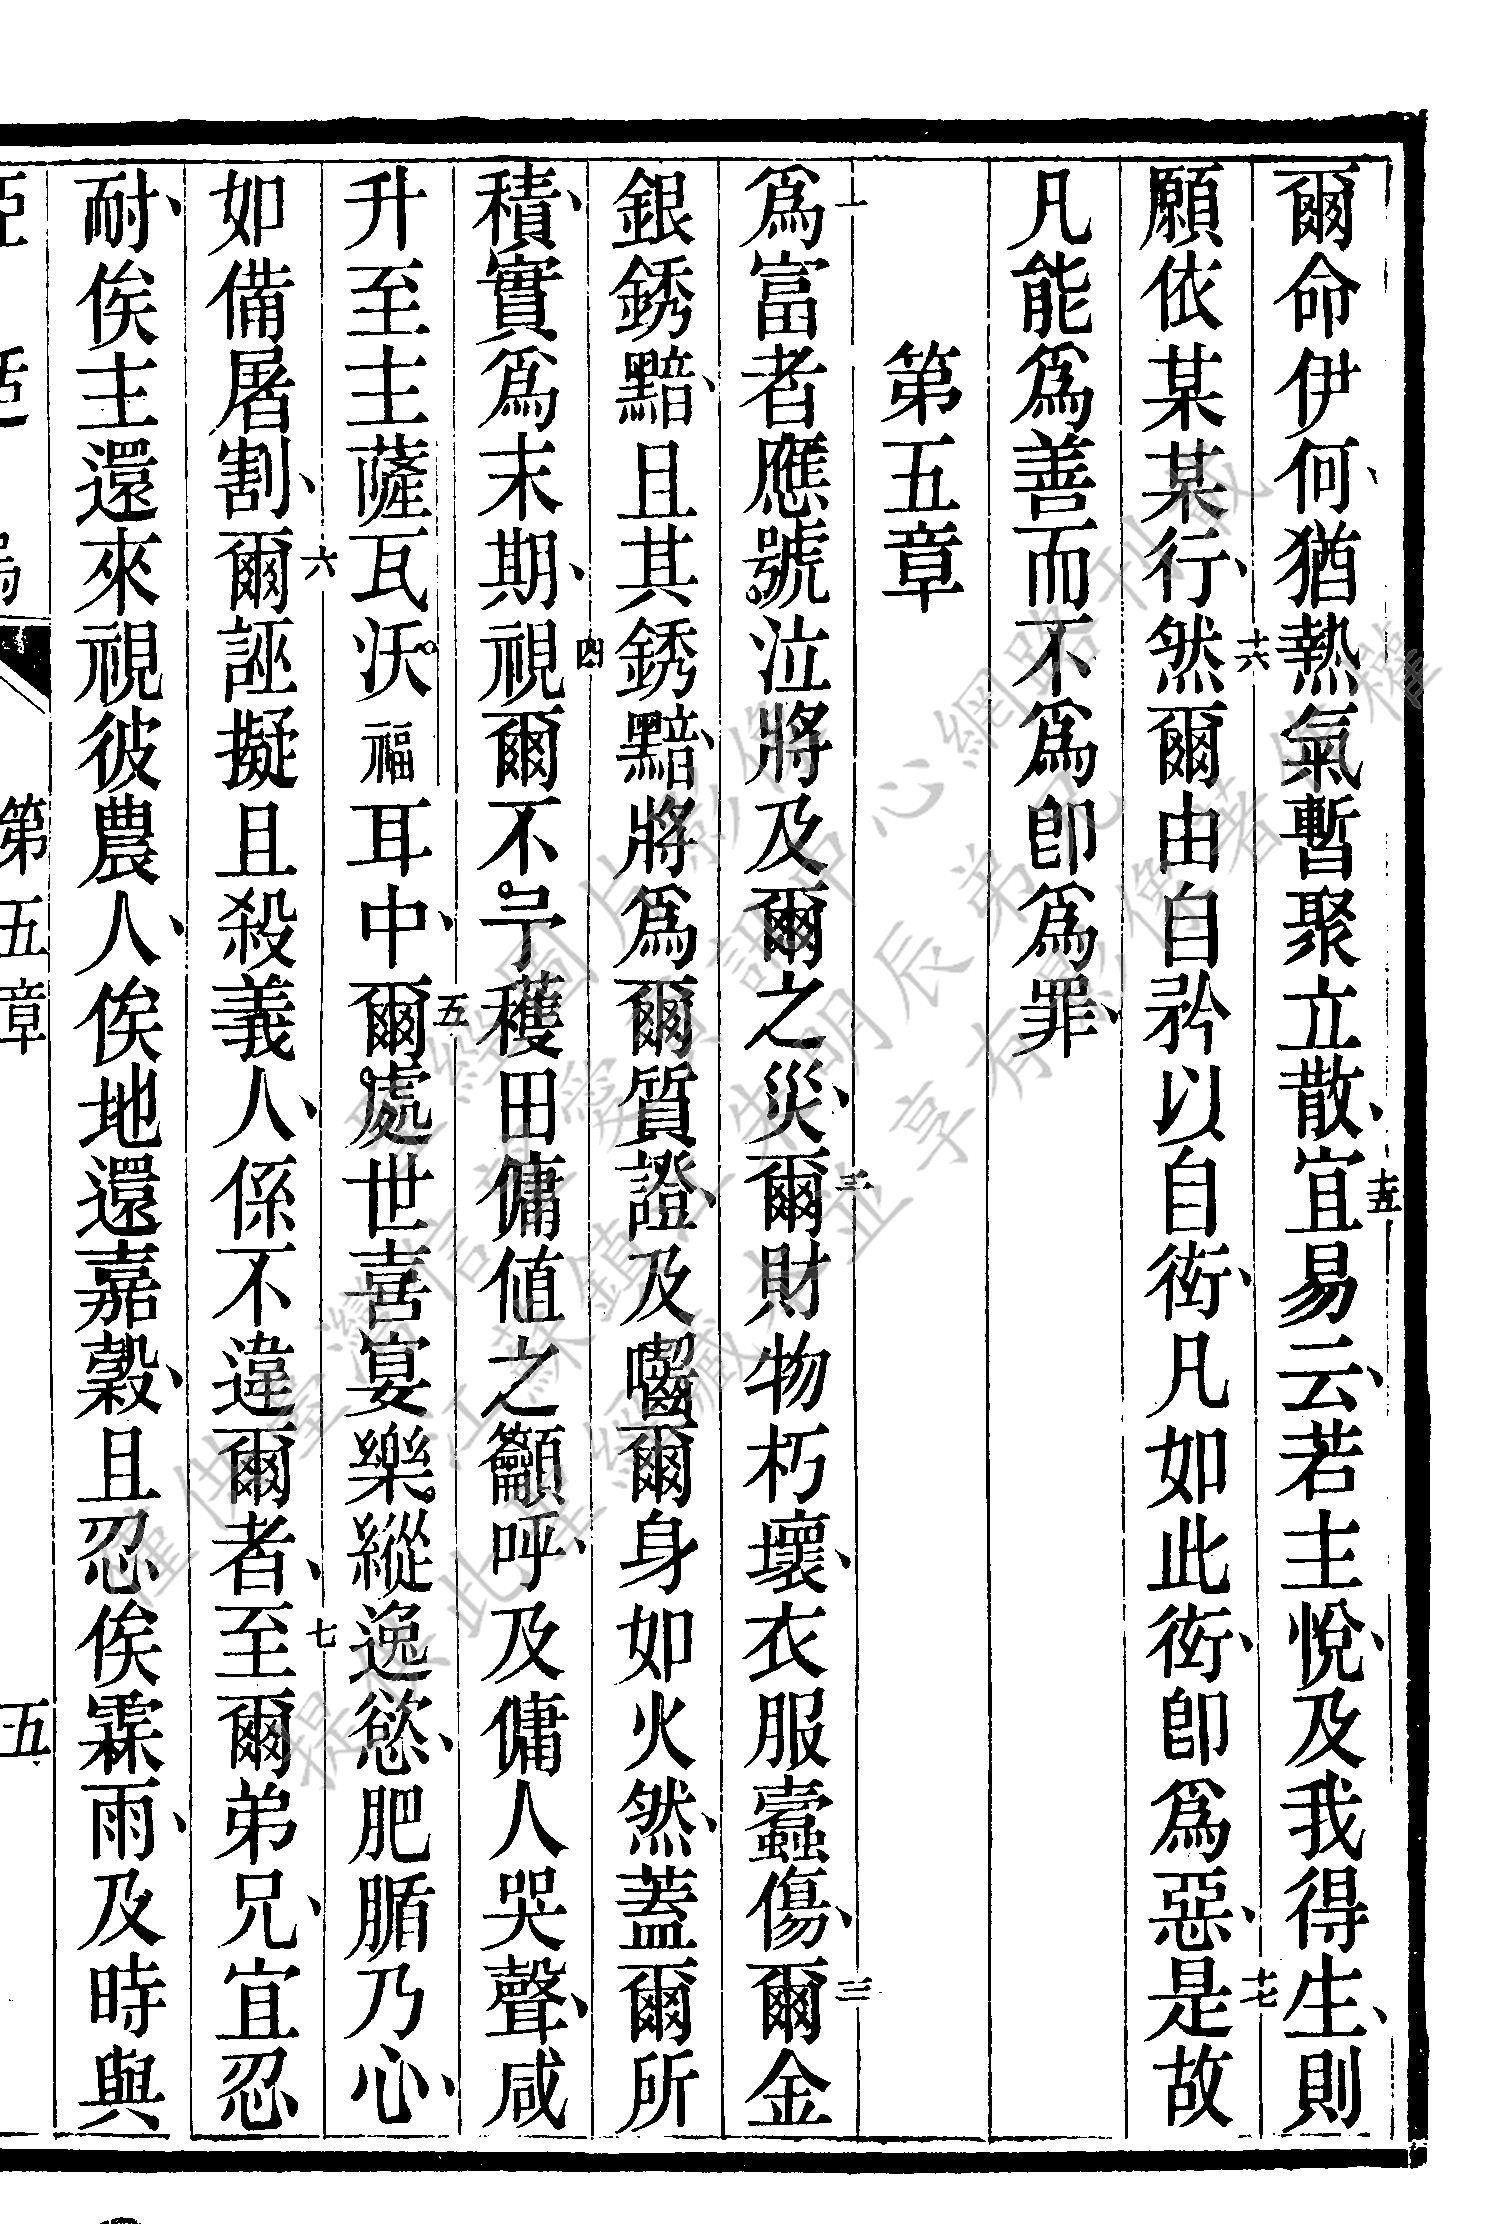 爾命伊何、猶熱氣暫聚立散、十五宜易云、若主悅、及我得生、則
願依某某行、十六然爾由自矜以自衒、凡如此衒、卽爲惡、十七是故
凡能爲善而不爲卽爲罪、
第五章
一爲富者應號泣將及爾之災、二爾財物朽壞、衣服蠹傷、三爾金
銀銹黯、且其銹黯、將爲爾質證、及嚙爾身如火然、蓋爾所
積、實爲末期、四視爾不予穫田傭値之籲呼、及傭人哭聲、咸
升至主薩瓦沃福耳中、五爾處世喜宴樂縱逸慾、肥腯乃心、
如備屠割、六爾誣擬且殺義人、係不違爾者、七至爾弟兄、宜忍
耐、俟主還來視彼農人、俟地還嘉穀、且忍俟霖雨、及時與
第五章 五